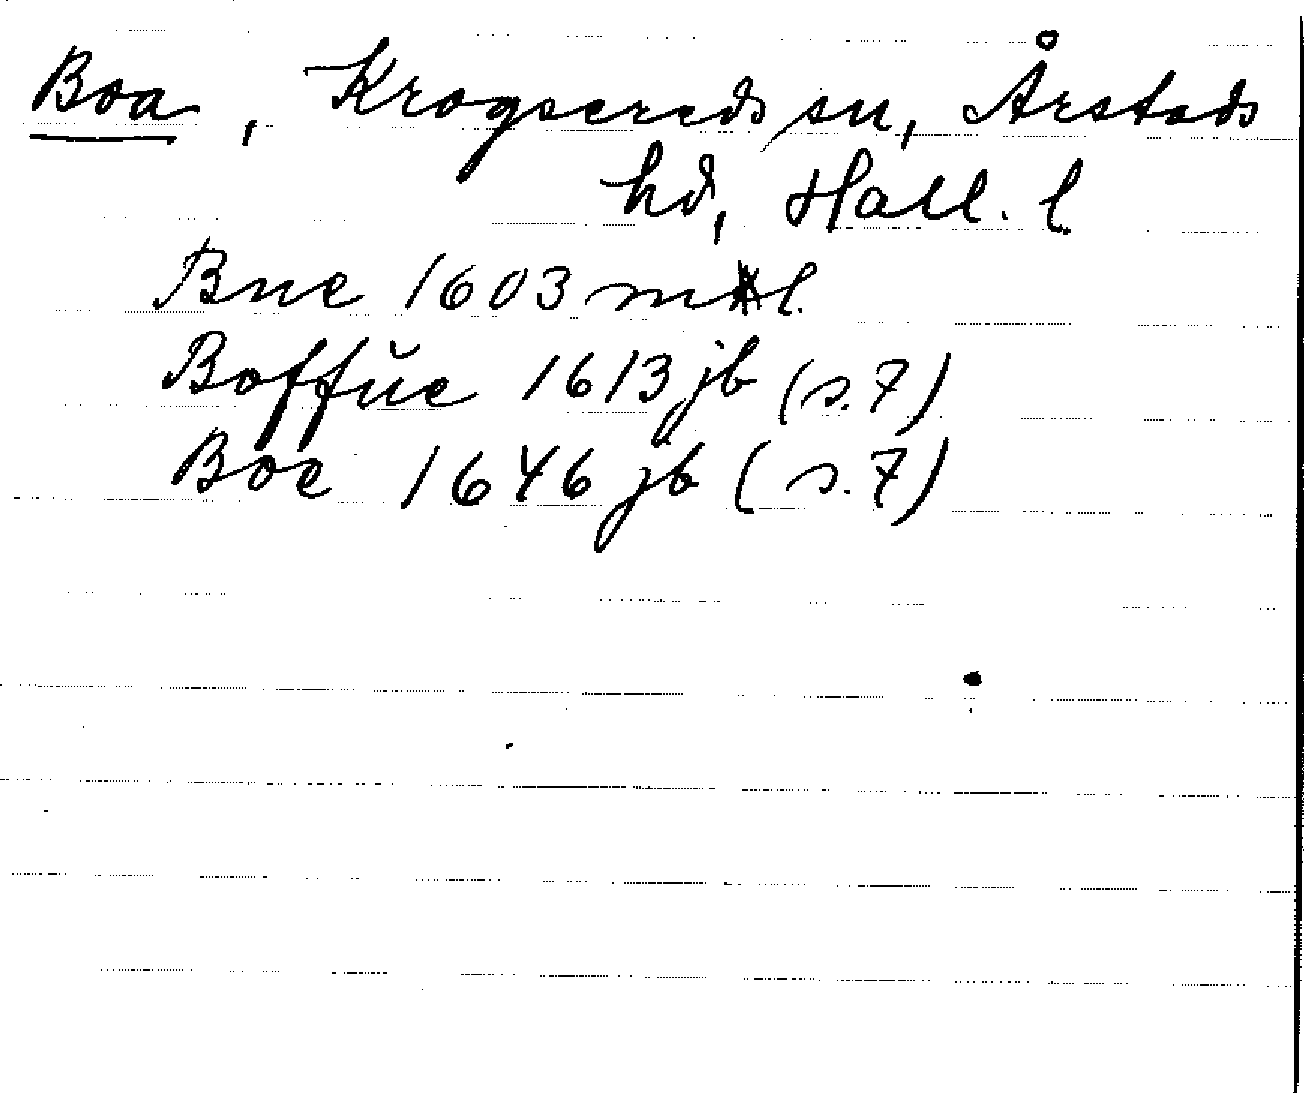 Boa, Krogsereds sn, Årstads
hd, Hall. l.
Bue 1603 ml.
Boffŭe 1613 jb (s. 7)
Boe 1646 jb (s. 7)